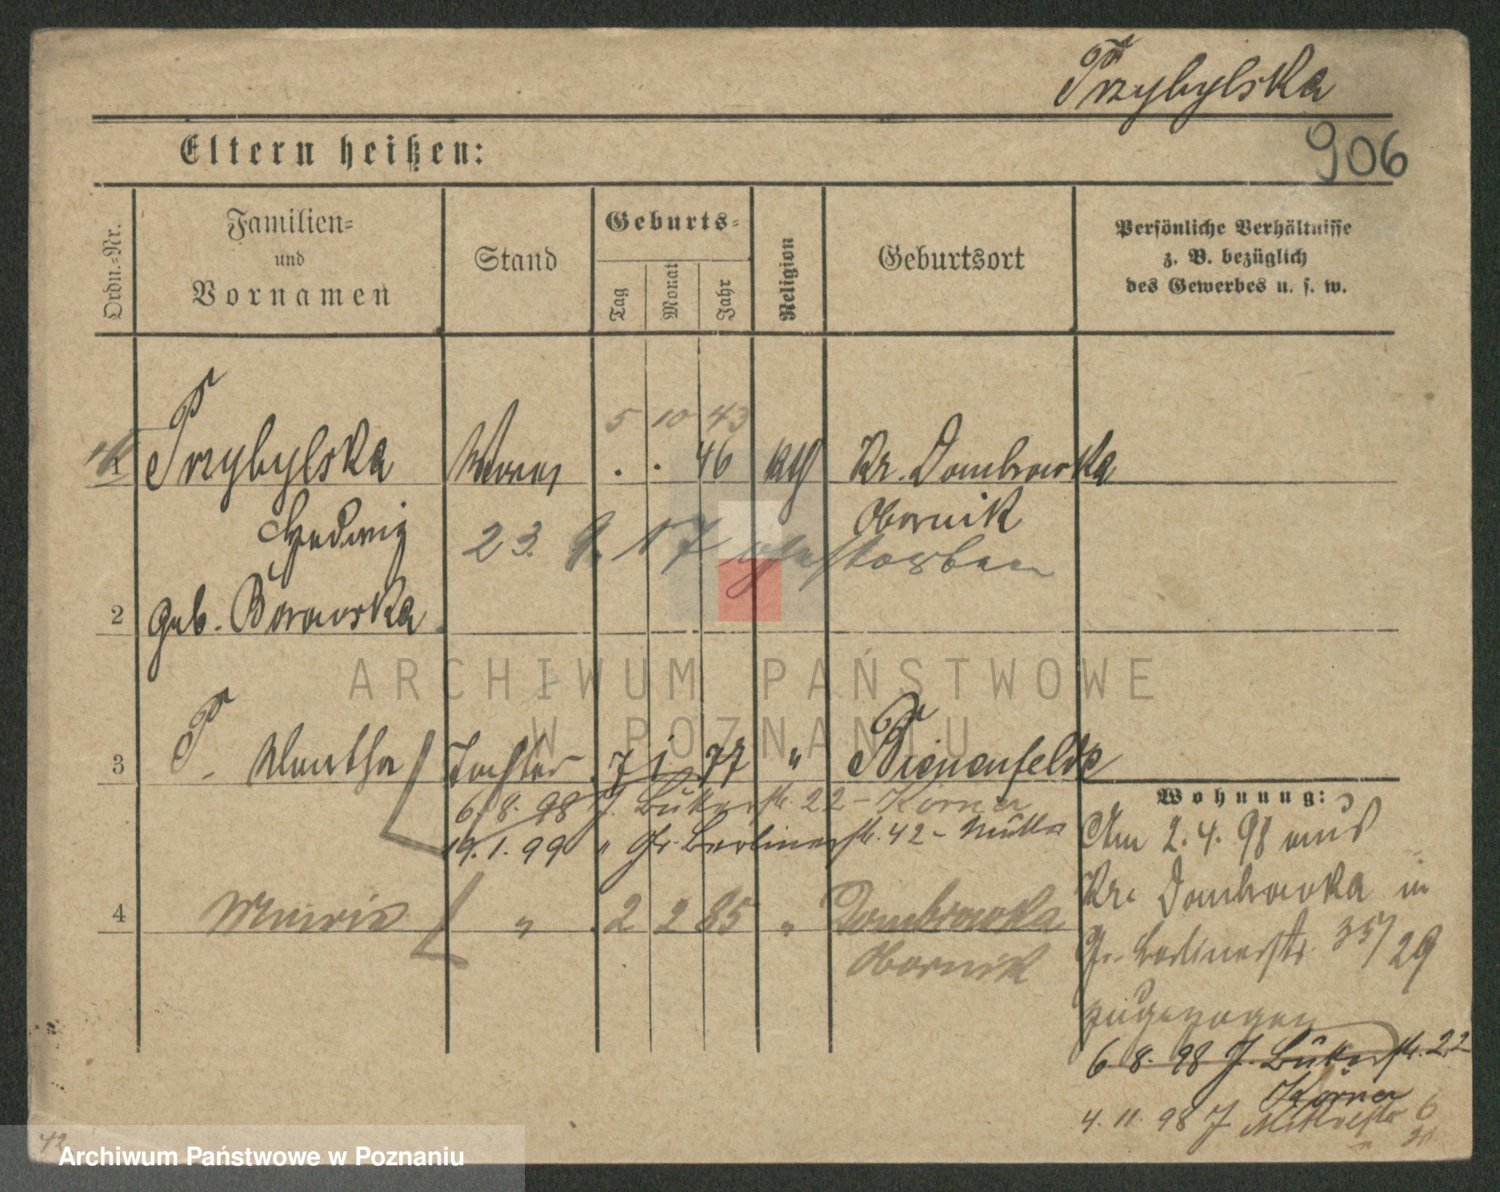 Przybylska
906
Eltern heißen:
Ordn.-Nr.
Familien-
und
Vornamen
Stand
Geburts-
Tag
Monat
Jahr
Religion
Geburtsort
Persönliche Verhältnisse
z. B. bezüglich
des Gewerbes u. s. w.
5 10 43
1 Przybylska . . 46 kth Kr. Dombrowka
Hedwig Obornik
23. 9. 17 gestorben
2 geb. Borowska
3 P. Martha Tochter 7 1 77 " Bienenfelde
6/8. 98 J. Bukerstr. 22 - Körner
19. 1. 99 " Gr. Berlinerstr. 42 -
4 " 2 2 85 " Dombrowka
Obornik
Wohnung:
Am 2. 4. 98 aus
Kr. Dombrowka in
Gr. Berlinerstr. 35/29
zugezogen
6. 8. 98 J. Bukerstr. 22
Körner
4. 11. 98 J. 6
ARCHIWUM PAŃSTWOWE
W POZNANIU
Archiwum Państwowe w Poznaniu